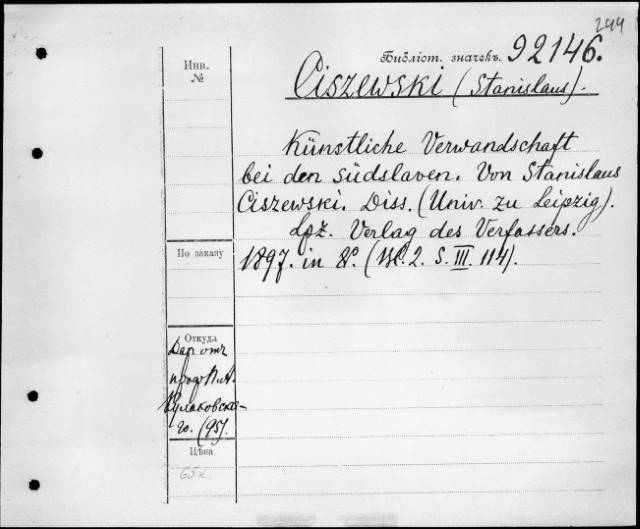 244
Библіот. значекъ. 92146.
Инв.
№
Ciszewski (Stanislaus).
Künstliche Verwandschaft
bei den Südslaven. Von Stanislaus
Ciszewski. Diss. (Univ. zu Leipzig).
Lpz. Verlag des Verfassers.
1897. in 8º. (Bl. 2. S. III. 114).
По заказу
Откуда
Дар отъ
проф. П. А.
Кулаковско-
го. (95).
Цѣна
65к